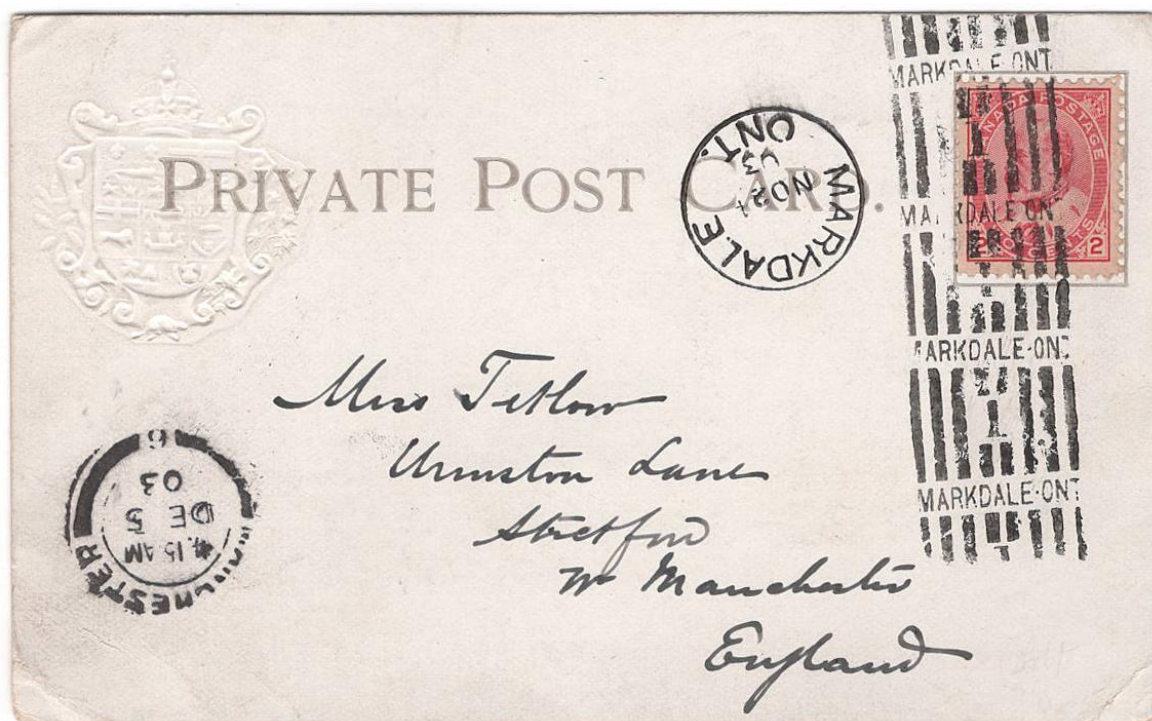 PRIVATE POST CARD.
MARKDALE ONT.
NO 21
03
MARKDALE·ONT
CANADA POSTAGE
2 TWO CENTS 2
MARKDALE·ONT
1
MARKDALE·ONT
1
MARKDALE·ONT
1
Miss Tetlow
Urmston Lane
Stretford
Nr Manchester
England
MANCHESTER
4.15 AM
DE 5
03